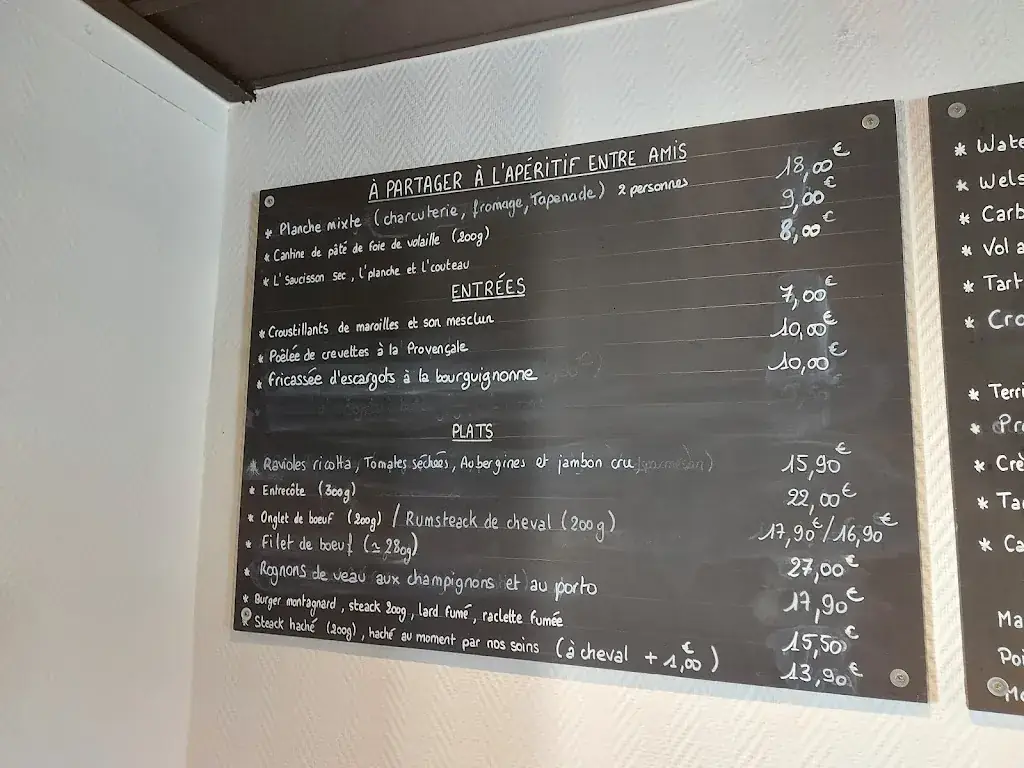 À PARTAGER À L'APÉRITIF ENTRE AMIS
* Planche mixte (charcuterie, fromage, Tapenade) 2 personnes 18,00€
* Cantine de pâté de foie de volaille (200g) 9,00€
* L'Saucisson sec, l'planche et l'couteau 8,00€
ENTRÉES
* Croustillants de maroilles et son mesclun 7,00€
* Poêlée de crevettes à la Provençale 10,00€
* fricassée d'escargots à la bourguignonne 10,00€
PLATS
* Ravioles ricotta, Tomates séchées, Aubergines et jambon cru (parmesan) 15,90€
* Entrecôte (300g) 22,00€
* Onglet de boeuf (200g) / Rumsteack de cheval (200g) 17,90€/16,90€
* Filet de boeuf (≃280g) 27,00€
* Rognons de veau aux champignons et au porto 17,90€
* Burger montagnard, steack 200g, lard fumé, raclette fumée 15,50€
* Steack haché (200g), haché au moment par nos soins (à cheval + 1,00€) 13,90€
* Wate
* Wels
* Carb
* Vol a
* Tart
* Cro
* Terri
* Pr
* Crè
* Ta
* Ca
Ma
Poi
Mo